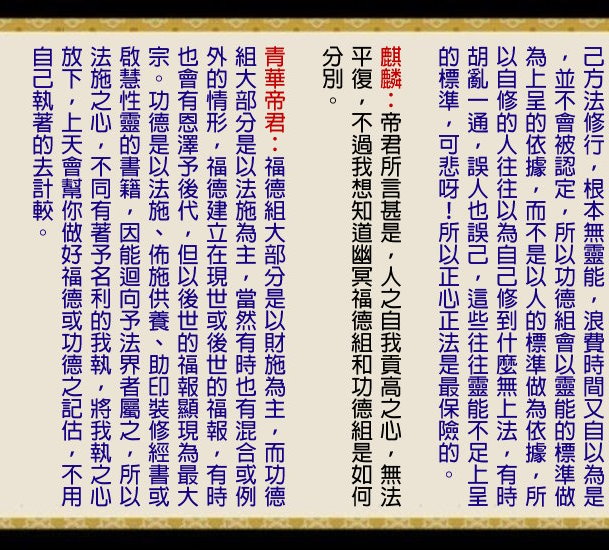 己方法修行，根本無靈能，浪費時間又自以為是
，並不會被認定，所以功德組會以靈能的標準做
為上呈的依據，而不是以人的標準做為依據，所
以自修的人往往以為自己修到什麼無上法，有時
胡亂一通，誤人也誤己，這些往往靈能不足上呈
的標準，可悲呀！所以正心正法是最保險的。
麒麟：帝君所言甚是，人之自我貢高之心，無法
平復，不過我想知道幽冥福德組和功德組是如何
分別。
青華帝君：福德組大部分是以財施為主，而功德
組大部分是以法施為主，當然有時也有混合或例
外的情形，福德建立在現世或後世的福報，有時
也會有恩澤予後代，但以後世的福報顯現為最大
宗。功德是以法施、佈施供養、助印裝修經書或
啟慧性靈的書籍，因能迴向予法界者屬之，所以
法施之心，不同有著予名利的我執，將我執之心
放下，上天會幫你做好福德或功德之記估，不用
自己執著的去計較。